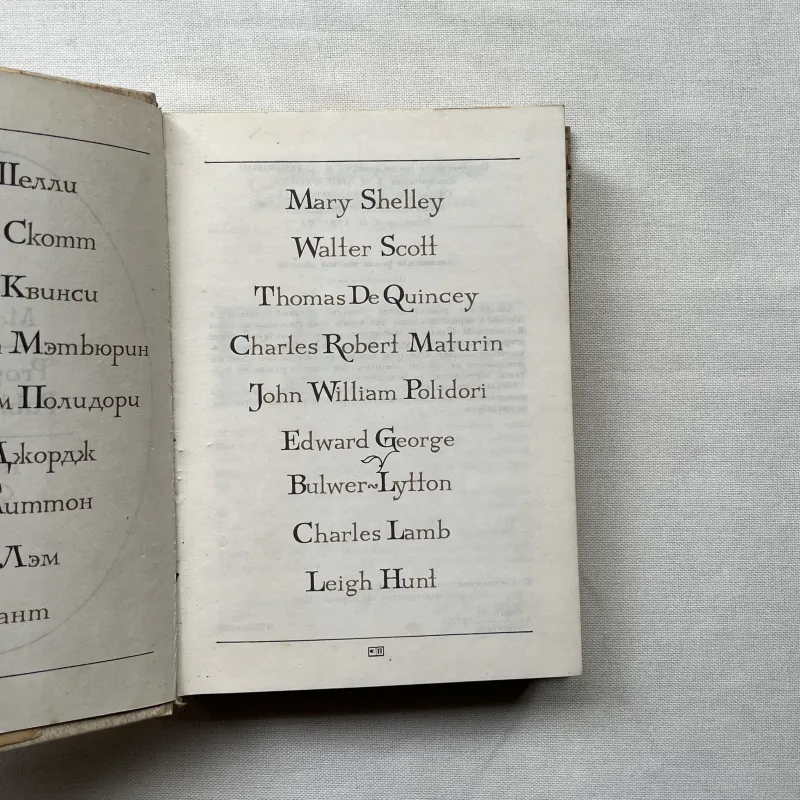 Шелли
Скотт
Квинси
Мэтьюрин
Полидори
Джордж
Литтон
Лэм
Mary Shelley
Walter Scott
Thomas De Quincey
Charles Robert Maturin
John William Polidori
Edward George
Bulwer~Lytton
Charles Lamb
Leigh Hunt